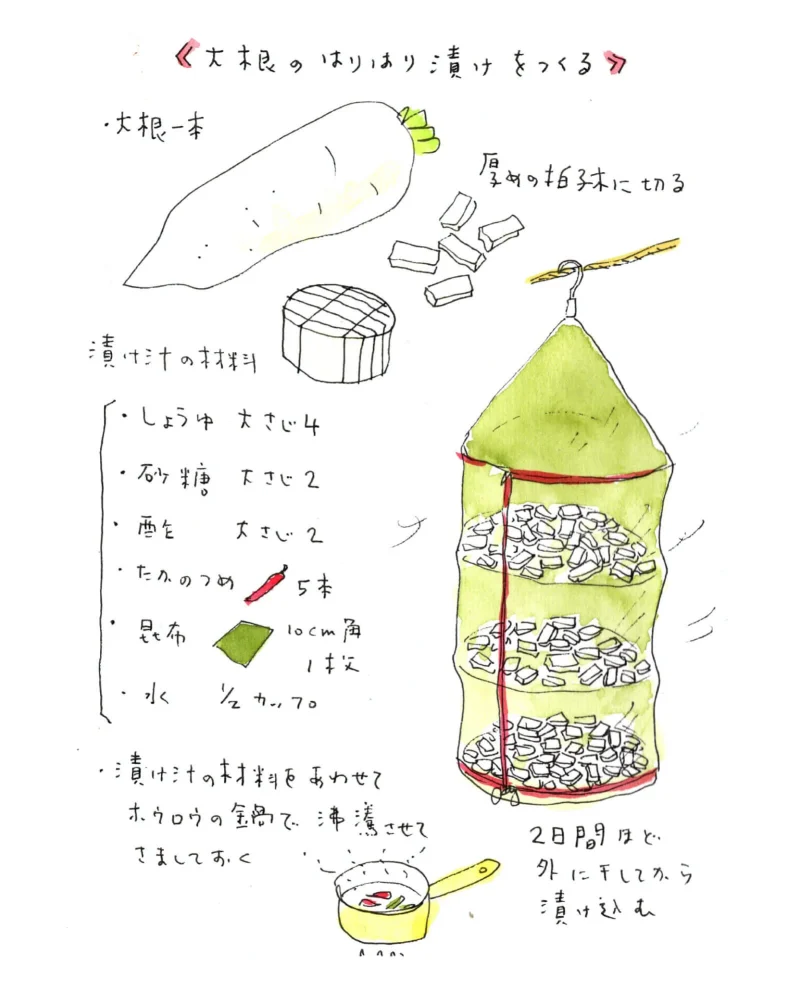 《大根のはりはり漬けをつくる》
・大根一本
厚めの拍子木に切る
漬け汁の材料
・しょうゆ 大さじ4
・砂糖 大さじ2
・酢 大さじ2
・たかのつめ 5本
・昆布 10cm角
1枚
・水 1/2カップ
・漬け汁の材料をあわせて
ホウロウの鍋で沸騰させて
さましておく
2日間ほど
外に干してから
漬け込む